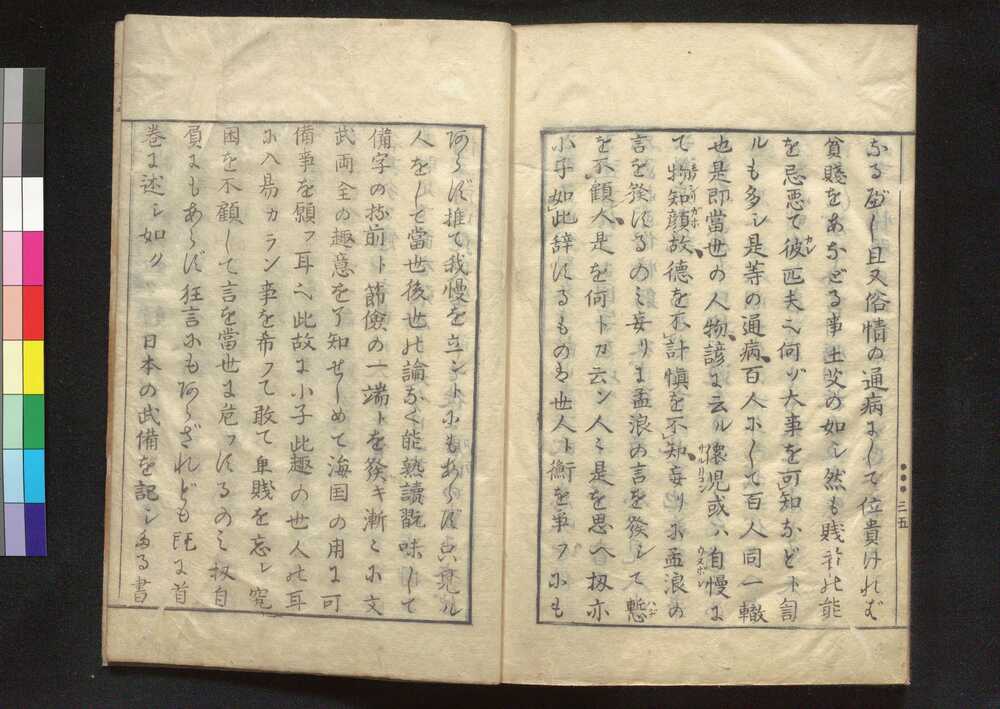 なるべし且又俗情の通病にして位貴けれバ
貧賤をあなどる事土芥の如シ然も賤新之能
を忌悪て彼匹夫何ゾ大事を可知などト訇
カレ
ルも多シ是等の通病百人にして百人同一轍
也是即當世の人物、諺に云ル懐児或ハ自慢
て物知顔故、德を不計慎を不知、妄リに孟浪の
言を發するのミ妄リに孟浪の言を發シて慙
ハヂ
を不顧、人是を何トカ云ン人ミ是を思ヘ扨亦
小子如此辞するものハ世人ト衡を争フにも
三五
あらず推て我慢を立ントにもあらず只見ル
人をして當世後世之論なく能熟讀翫味して
備字の前ト節儉の一端トを發キ漸ミに文
武両全の趣意を了知せしめて海国の用に可
備事を願フ耳此故に小子此趣の世人之耳
に入易カラン事を希フて敢て卑賤を忘レ窮
困を不顧して言を當世に危フするのミ扨自
負にもあらず狂言にもあらざれども既に首
巻に述シ如ク 日本の武備を記シたる書